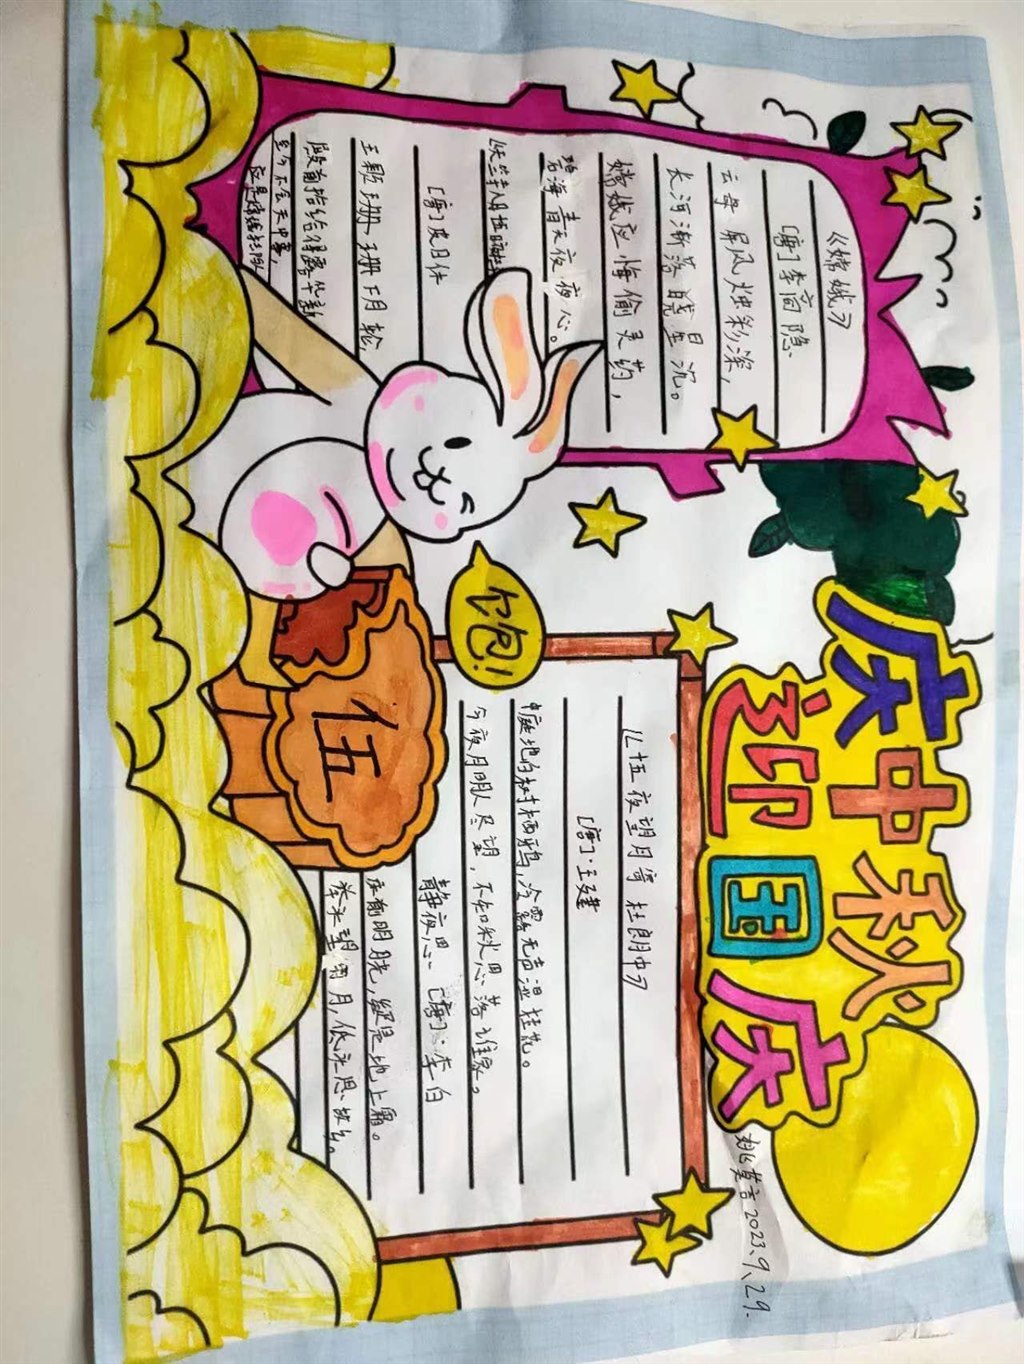 庆中秋
迎国庆
2023、9、29.
《嫦娥》
[唐]李商隐
云母屏风烛彩深,
长河渐落晓星沉。
嫦娥应悔偷灵药,
碧海青天夜夜心。
[唐]皮日休
玉颗珊珊下月轮
殿前拾得露华新
至今不会天中事,
伍
《十五夜望月寄杜郎中》
[唐]·王建
中庭地白树栖鸦,冷露无声湿桂花。
今夜月明人尽望,不知秋思落谁家。
静夜思 [唐]·李白
床前明月光,疑是地上霜。
举头望明月,低头思故乡。